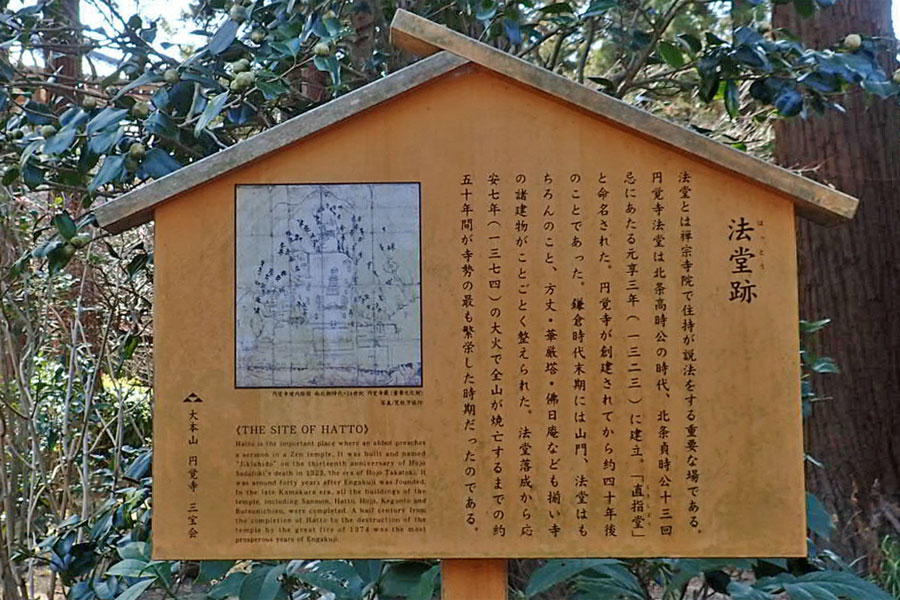 法堂跡
はっとう
法堂とは禅宗寺院で住持が説法をする重要な場である。
円覚寺法堂は北条高時公の時代、北条貞時公十三回
忌にあたる元亨三年(一三二三)に建立。「直指堂」
と命名された。円覚寺が創建されてから約四十年後
のことであった。鎌倉時代末期には山門、法堂はも
ちろんのこと、方丈・華厳塔・佛日庵なども揃い寺
の諸建物がことごとく整えられた。法堂落成から応
安七年(一三七四)の大火で全山が焼亡するまでの約
五十年間が寺勢の最も繁栄した時期だったのである。
円覚寺境内絵図 南北朝時代・14世紀 円覚寺蔵(重要文化財)
《THE SITE OF HATTO》
Hatto is the important place where an abbot preaches
a sermon in a Zen temple. It was built and named
"Jikishido" on the thirteenth anniversary of Hojo
Sadatoki's death in 1323, the era of Hojo Takatoki. It
was around forty years after Engakuji was founded.
In the late Kamakura era, all the buildings of the
temple, including Sanmon, Hatto, Hojo, Kegonto and
Butsunichian, were completed. A half century from
the completion of Hatto to the destruction of the
temple by the great fire of 1374 was the most
prosperous years of Engakuji.
大本山 円覚寺 三宝会